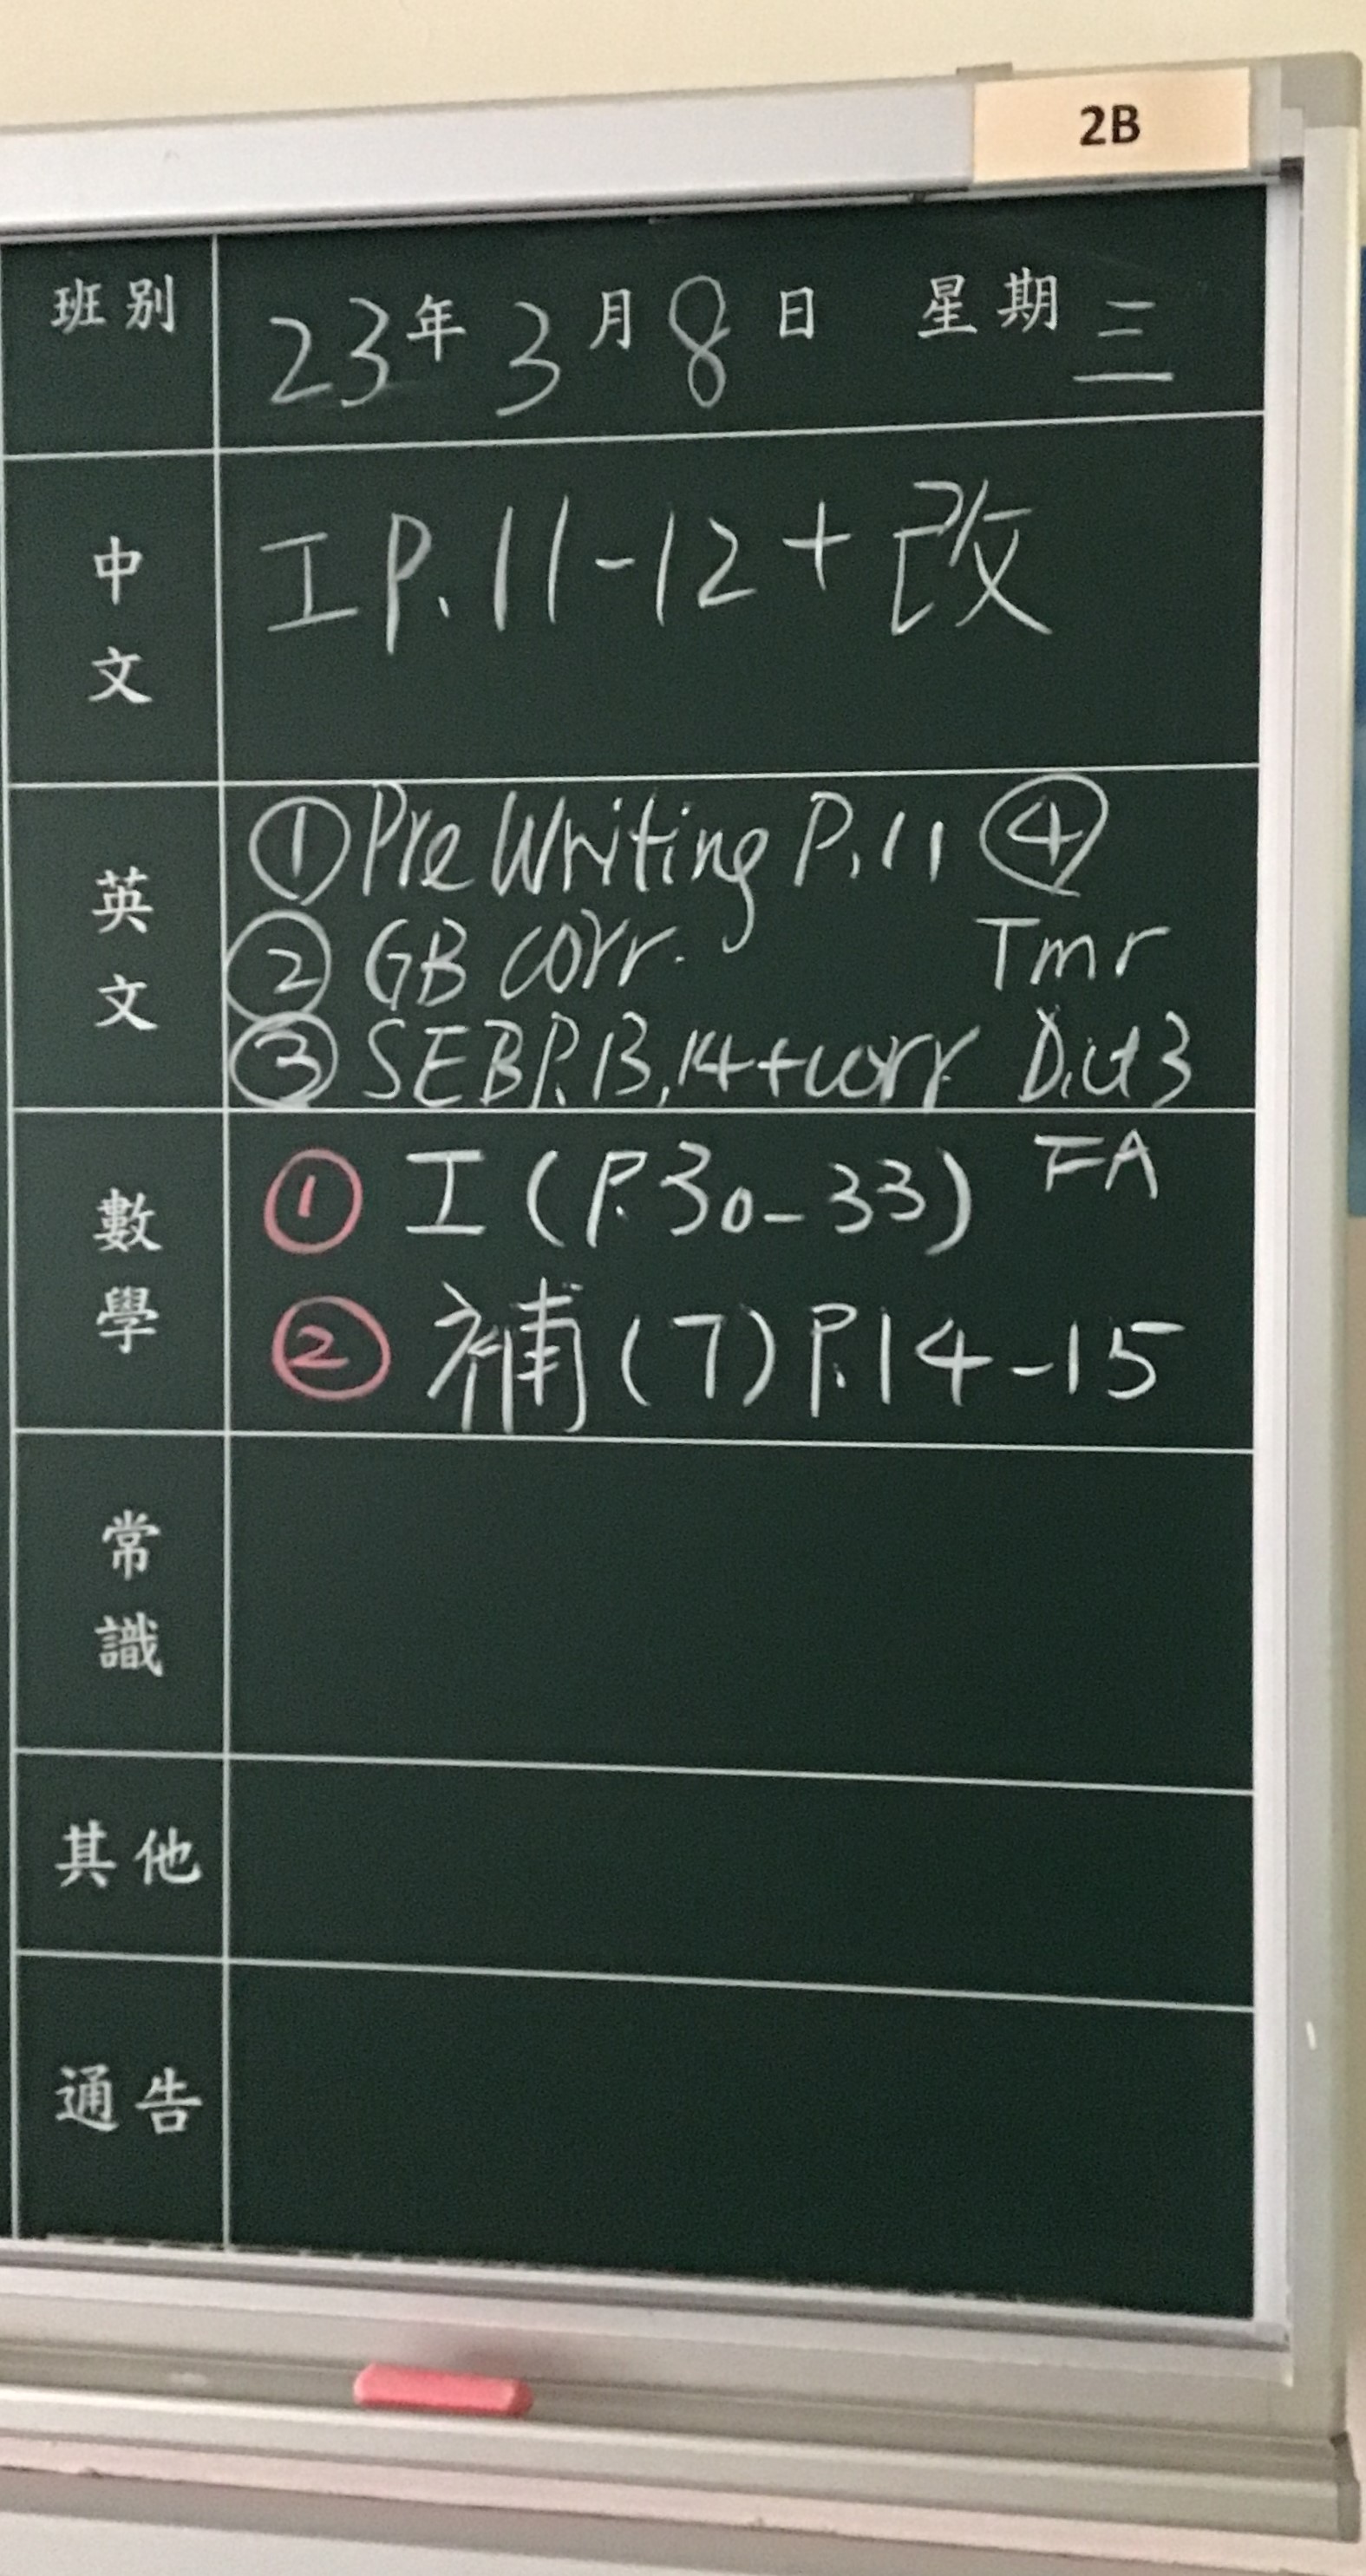 2B
班別 23年3月8日 星期三
中文 工P.11-12+改
英文 ①Pre Writing P.11 ④
②GB corr. Tmr
③SEB P.13,14+corr Dict3
數學 ①工(P.30-33) FA
②補(7)P.14-15
常識
其他
通告